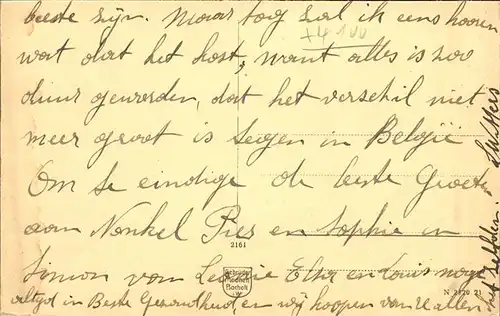 beste zijn. Maar tog zal ik eens hooren
wat dat het kost, want alles is zoo
+4 100
duur geworden, dat het verschil niet
meer groot is tegen in België
Om te eindige de beste Groete
aan Nonkel Pies en Sophie en
2161
Simon van Leonie Elza en Louis
altyd in Beste Gezondheid en wij hoopen van U allen
het zelfde.
Gebrüder Mädchen Bocholt
N 2820 21